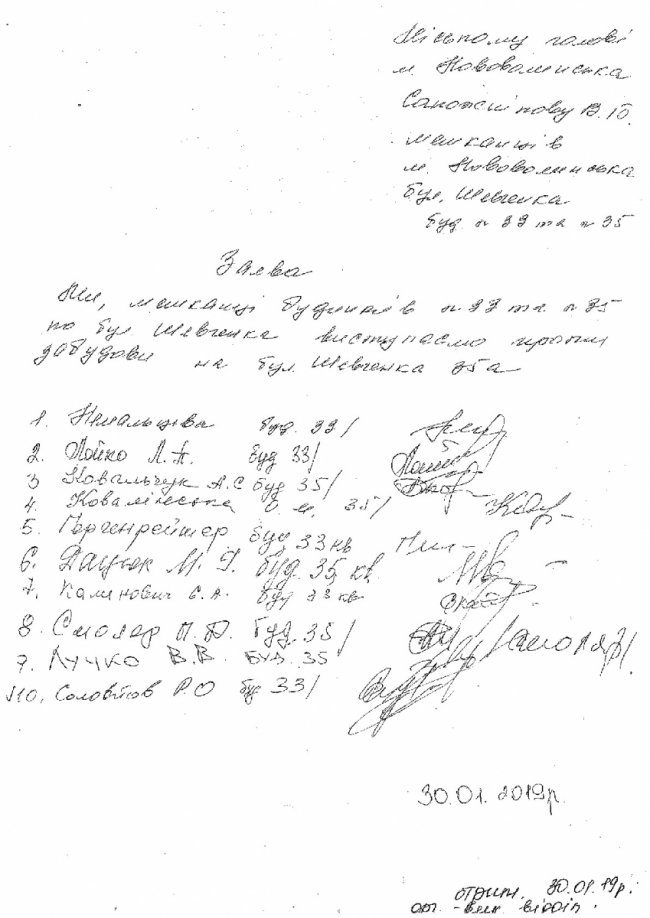 Міському голові
м. Нововолинська
Сапожнікову В.Б.
мешканців
м. Нововолинська
бул. Шевченка
буд. № 33 та № 35
Заява
Ми, мешканці будинків № 33 та № 35
по бул Шевченка виступаємо проти
забудови на бул. Шевченка 35а
1. буд. 33/
2. Лойко Л.А. буд 33/
3 Ковальчук А.С буд 35/
4. 35/
5. буд 33 кв
6. Дацюк М. буд. 35 кв.
7. Калинович Є.А. буд 33 кв.
8. Смоляр П. буд. 35/ Смоляр/
9. Лучко В.В. буд. 35
10. Соловйов Р.О буд 33/
30.01.2019р.
отрим. 30.01.19р.
від. відп.